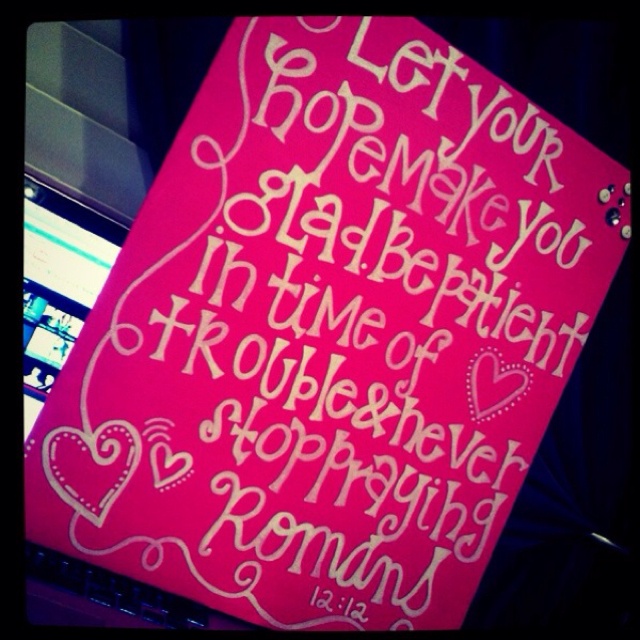 Let your
hope make you
glad. Be patient
in time of
trouble & never
stop praying
Romans
12:12